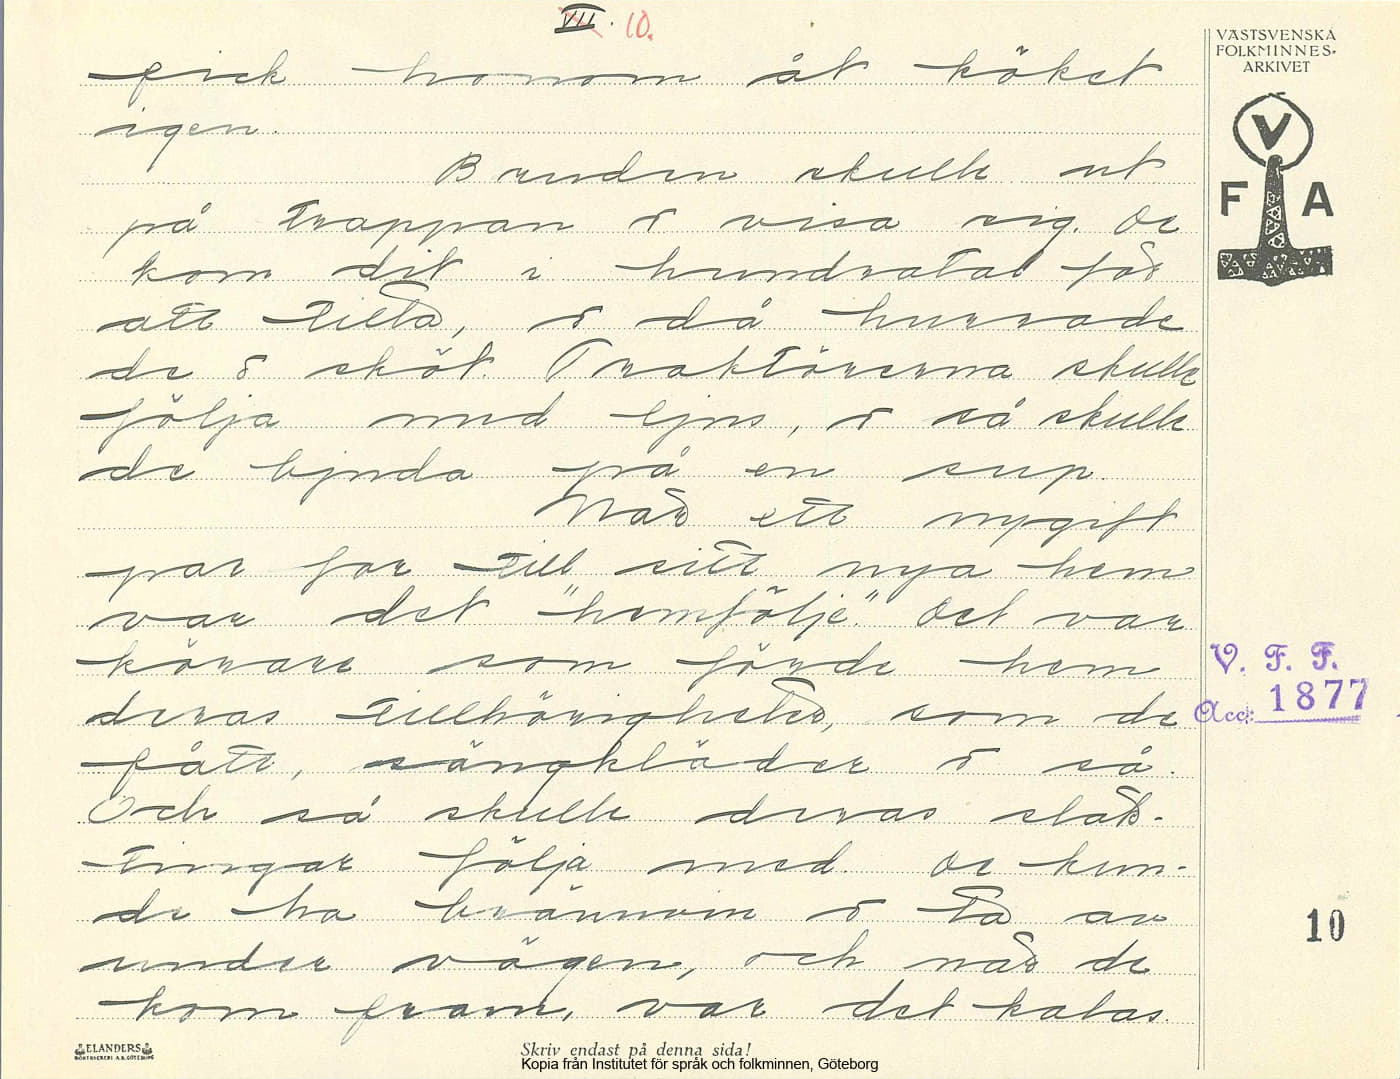 VII. 10.
VÄSTSVENSKA
FOLKMINNES-
ARKIVET
V
F A
fick honom åt köket
igen.
Bruden skulle ut
på trappan o visa sig. De
kom dit i hundratal för
att titta, o då hurrade
de o sköt. Traktörerna skulle
följa med ljus, o så skulle
de bjuda på en sup.
När ett nygift
par for till sitt nya hem
var det "hemfölje". Det var
körare som förde hem
deras tillhörigheter, som de
fått, sängkläder o så.
Och så skulle deras släk-
tingar följa med. De kun-
de ha brännvin o ta av
under vägen, och när de
kom fram, var det kalas.
V. F. F.
Acc: 1877
10
ELANDERS
BOKTRYCKERI A.B. GÖTEBORG
Skriv endast på denna sida!
Kopia från Institutet för språk och folkminnen, Göteborg